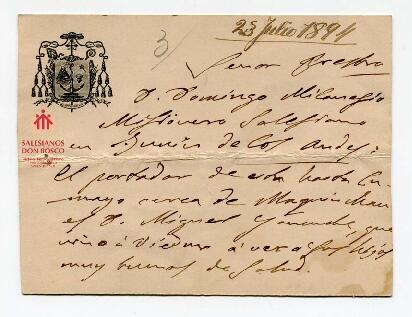 23 Julio 1894
3
Señor Presbro
D. Domingo Milanesio
Misionero Salesiano
en Junin de los Andes:
El portador de esta hasta Cu-
mayo cerca de Maquin Mau
es D. Miguel que
vino à Viedma à ver a sus hijos
muy buenos de salud.
SALESIANOS
DON BOSCO